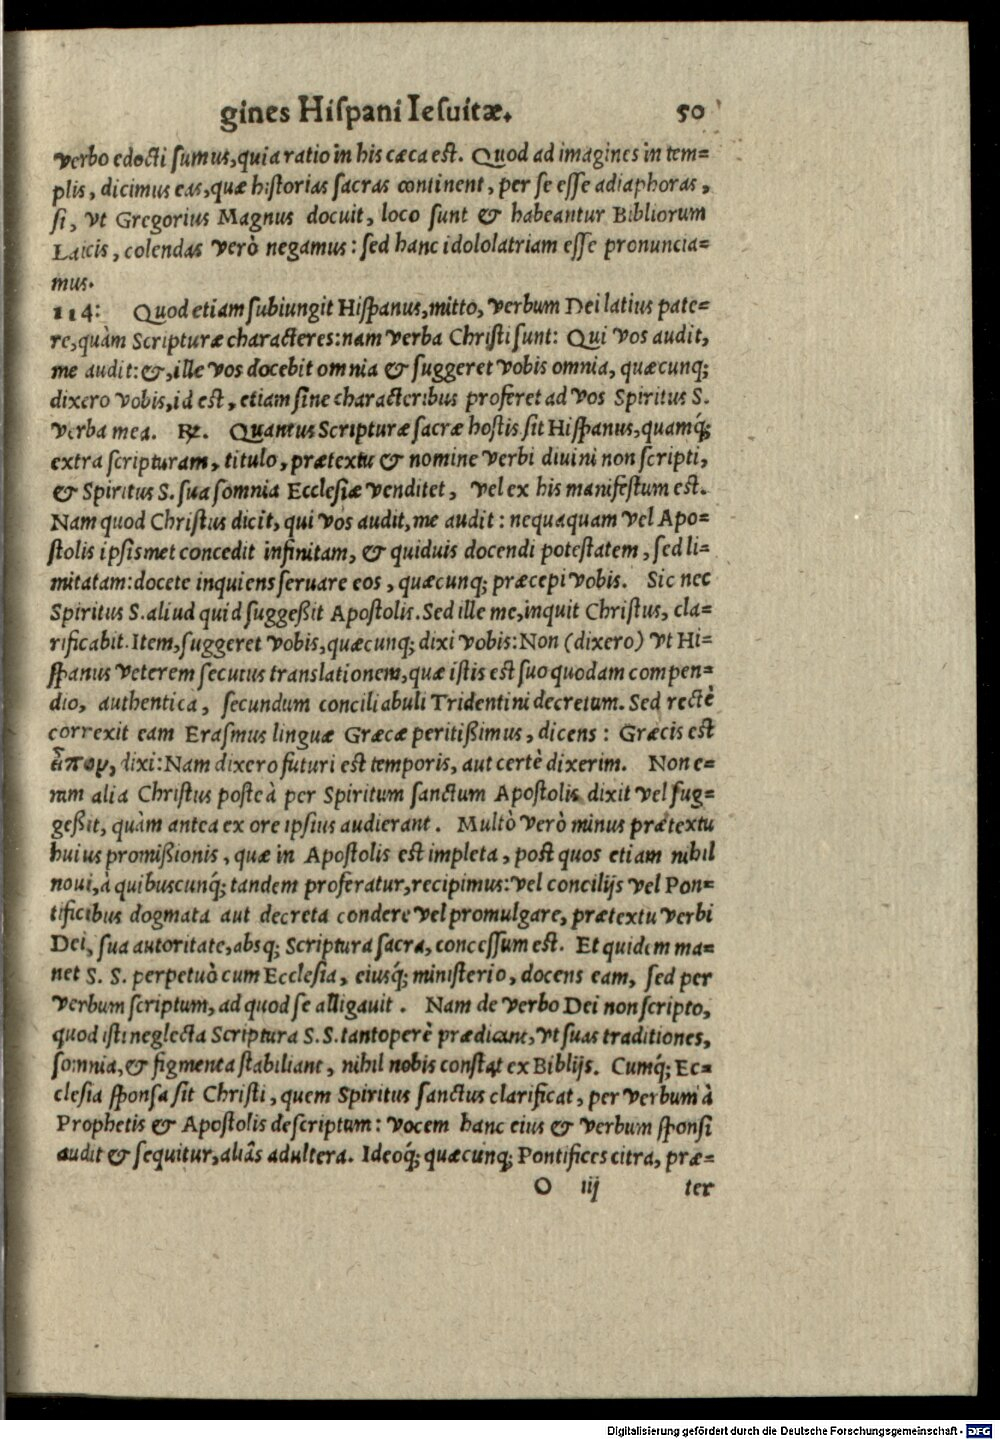 gines Hiſpani Ieſuitæ. 50
verbo edocti ſumus, quia ratio in his cæca est. Quod ad imagines in tem=
plis, dicimus eas, quæ hiſtorias ſacras continent, per ſe eſſe adiaphoras,
ſi, vt Gregorius Magnus docuit, loco ſunt & habeantur Bibliorum
Laicis, colendas verò negamus: ſed hanc idololatriam eſſe pronuncia=
mus.
114: Quod etiam ſubiungit Hiſpanus, mitto, verbum Dei latius pate=
re, quàm Scripturæ characteres: nam verba Chriſti ſunt: Qui vos audit,
me audit: &, ille vos docebit omnia & ſuggeret vobis omnia, quæcunq;
dixero vobis, id eſt, etiam ſine characteribus proferet ad vos Spiritus S.
verba mea. ℞. Quantus Scripturæ ſacræ hoſtis ſit Hiſpanus, quamq́;
extra ſcripturam, titulo, prætextu & nomine verbi diuini non ſcripti,
& Spiritus S. ſua ſomnia Eccleſiæ venditet, vel ex his manifeſtum eſt.
Nam quod Chriſtus dicit, qui vos audit, me audit: nequaquam vel Apo=
ſtolis ipſismet concedit infinitam, & quiduis docendi poteſtatem, ſed li=
mitatam: docete inquiens ſeruare eos, quæcunq; præcepi vobis. Sic nec
Spiritus S. aliud quid ſuggeßit Apoſtolis. Sed ille me, inquit Chriſtus, cla=
rificabit. Item, ſuggeret vobis, quæcunq; dixi vobis: Non (dixero) vt Hi=
ſpanus veterem ſecutus translationem, quæ iſtis eſt ſuo quodam compen=
dio, authentica, ſecundum conciliabuli Tridentini decretum. Sed rectè
correxit eam Eraſmus linguæ Græcæ peritißimus, dicens: Græcis eſt
εἶπον, dixi: Nam dixero futuri eſt temporis, aut certè dixerim. Non e=
nim alia Chriſtus poſteà per Spiritum ſanctum Apoſtolis dixit vel ſug=
geßit, quàm antea ex ore ipſius audierant. Multò verò minus prætextu
huius promißionis, quæ in Apoſtolis eſt impleta, poſt quos etiam nihil
noui, à quibuscunq́; tandem proferatur, recipimus: vel concilijs vel Pon=
tificibus dogmata aut decreta condere vel promulgare, prætextu verbi
Dei, ſua autoritate, absq; Scriptura ſacra, conceſſum eſt. Et quidem ma=
net S. S. perpetuò cum Eccleſia, eiusq́; miniſterio, docens eam, ſed per
verbum ſcriptum, ad quod ſe alligauit. Nam de verbo Dei non ſcripto,
quod iſti neglecta Scriptura S. S. tantoperè prædicant, vt ſuas traditiones,
ſomnia, & figmenta ſtabiliant, nihil nobis conſtat ex Biblijs. Cumq́; Ec=
cleſia ſponſa ſit Chriſti, quem Spiritus ſanctus clarificat, per verbum à
Prophetis & Apoſtolis deſcriptum: vocem hanc eius & verbum ſponſi
audit & ſequitur, aliâs adultera. Ideoq́; quæcunq; Pontifices citra, præ=
O iij ter
Digitalisierung gefördert durch die Deutsche Forschungsgemeinschaft - DFG